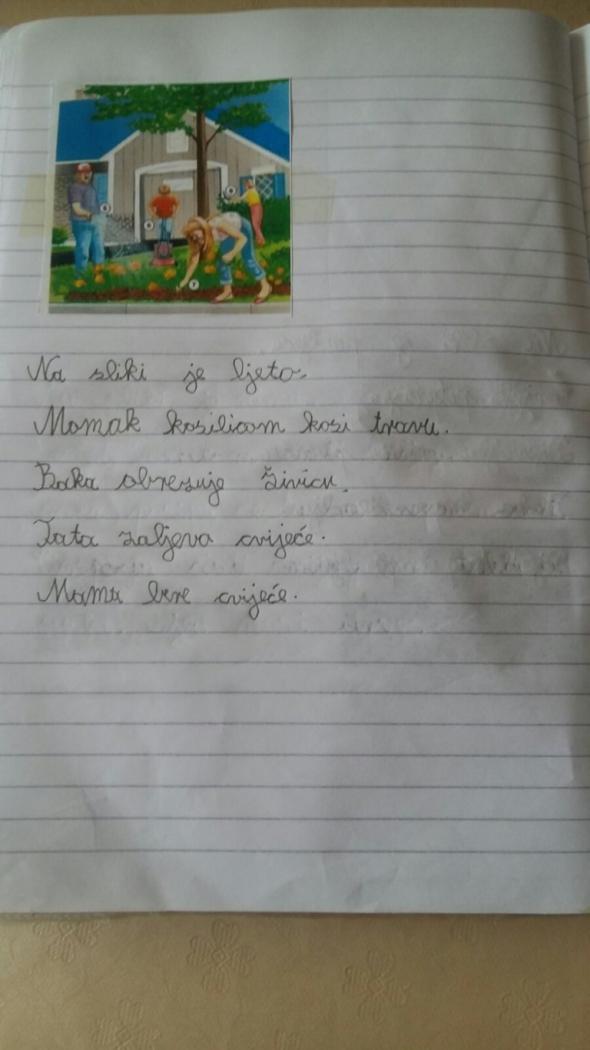 Na sliki je ljeto.
Momak kosilicom kosi travu.
Baka obrezuje živicu.
Tata zaljeva cvijeće.
Mama bere cvijeće.